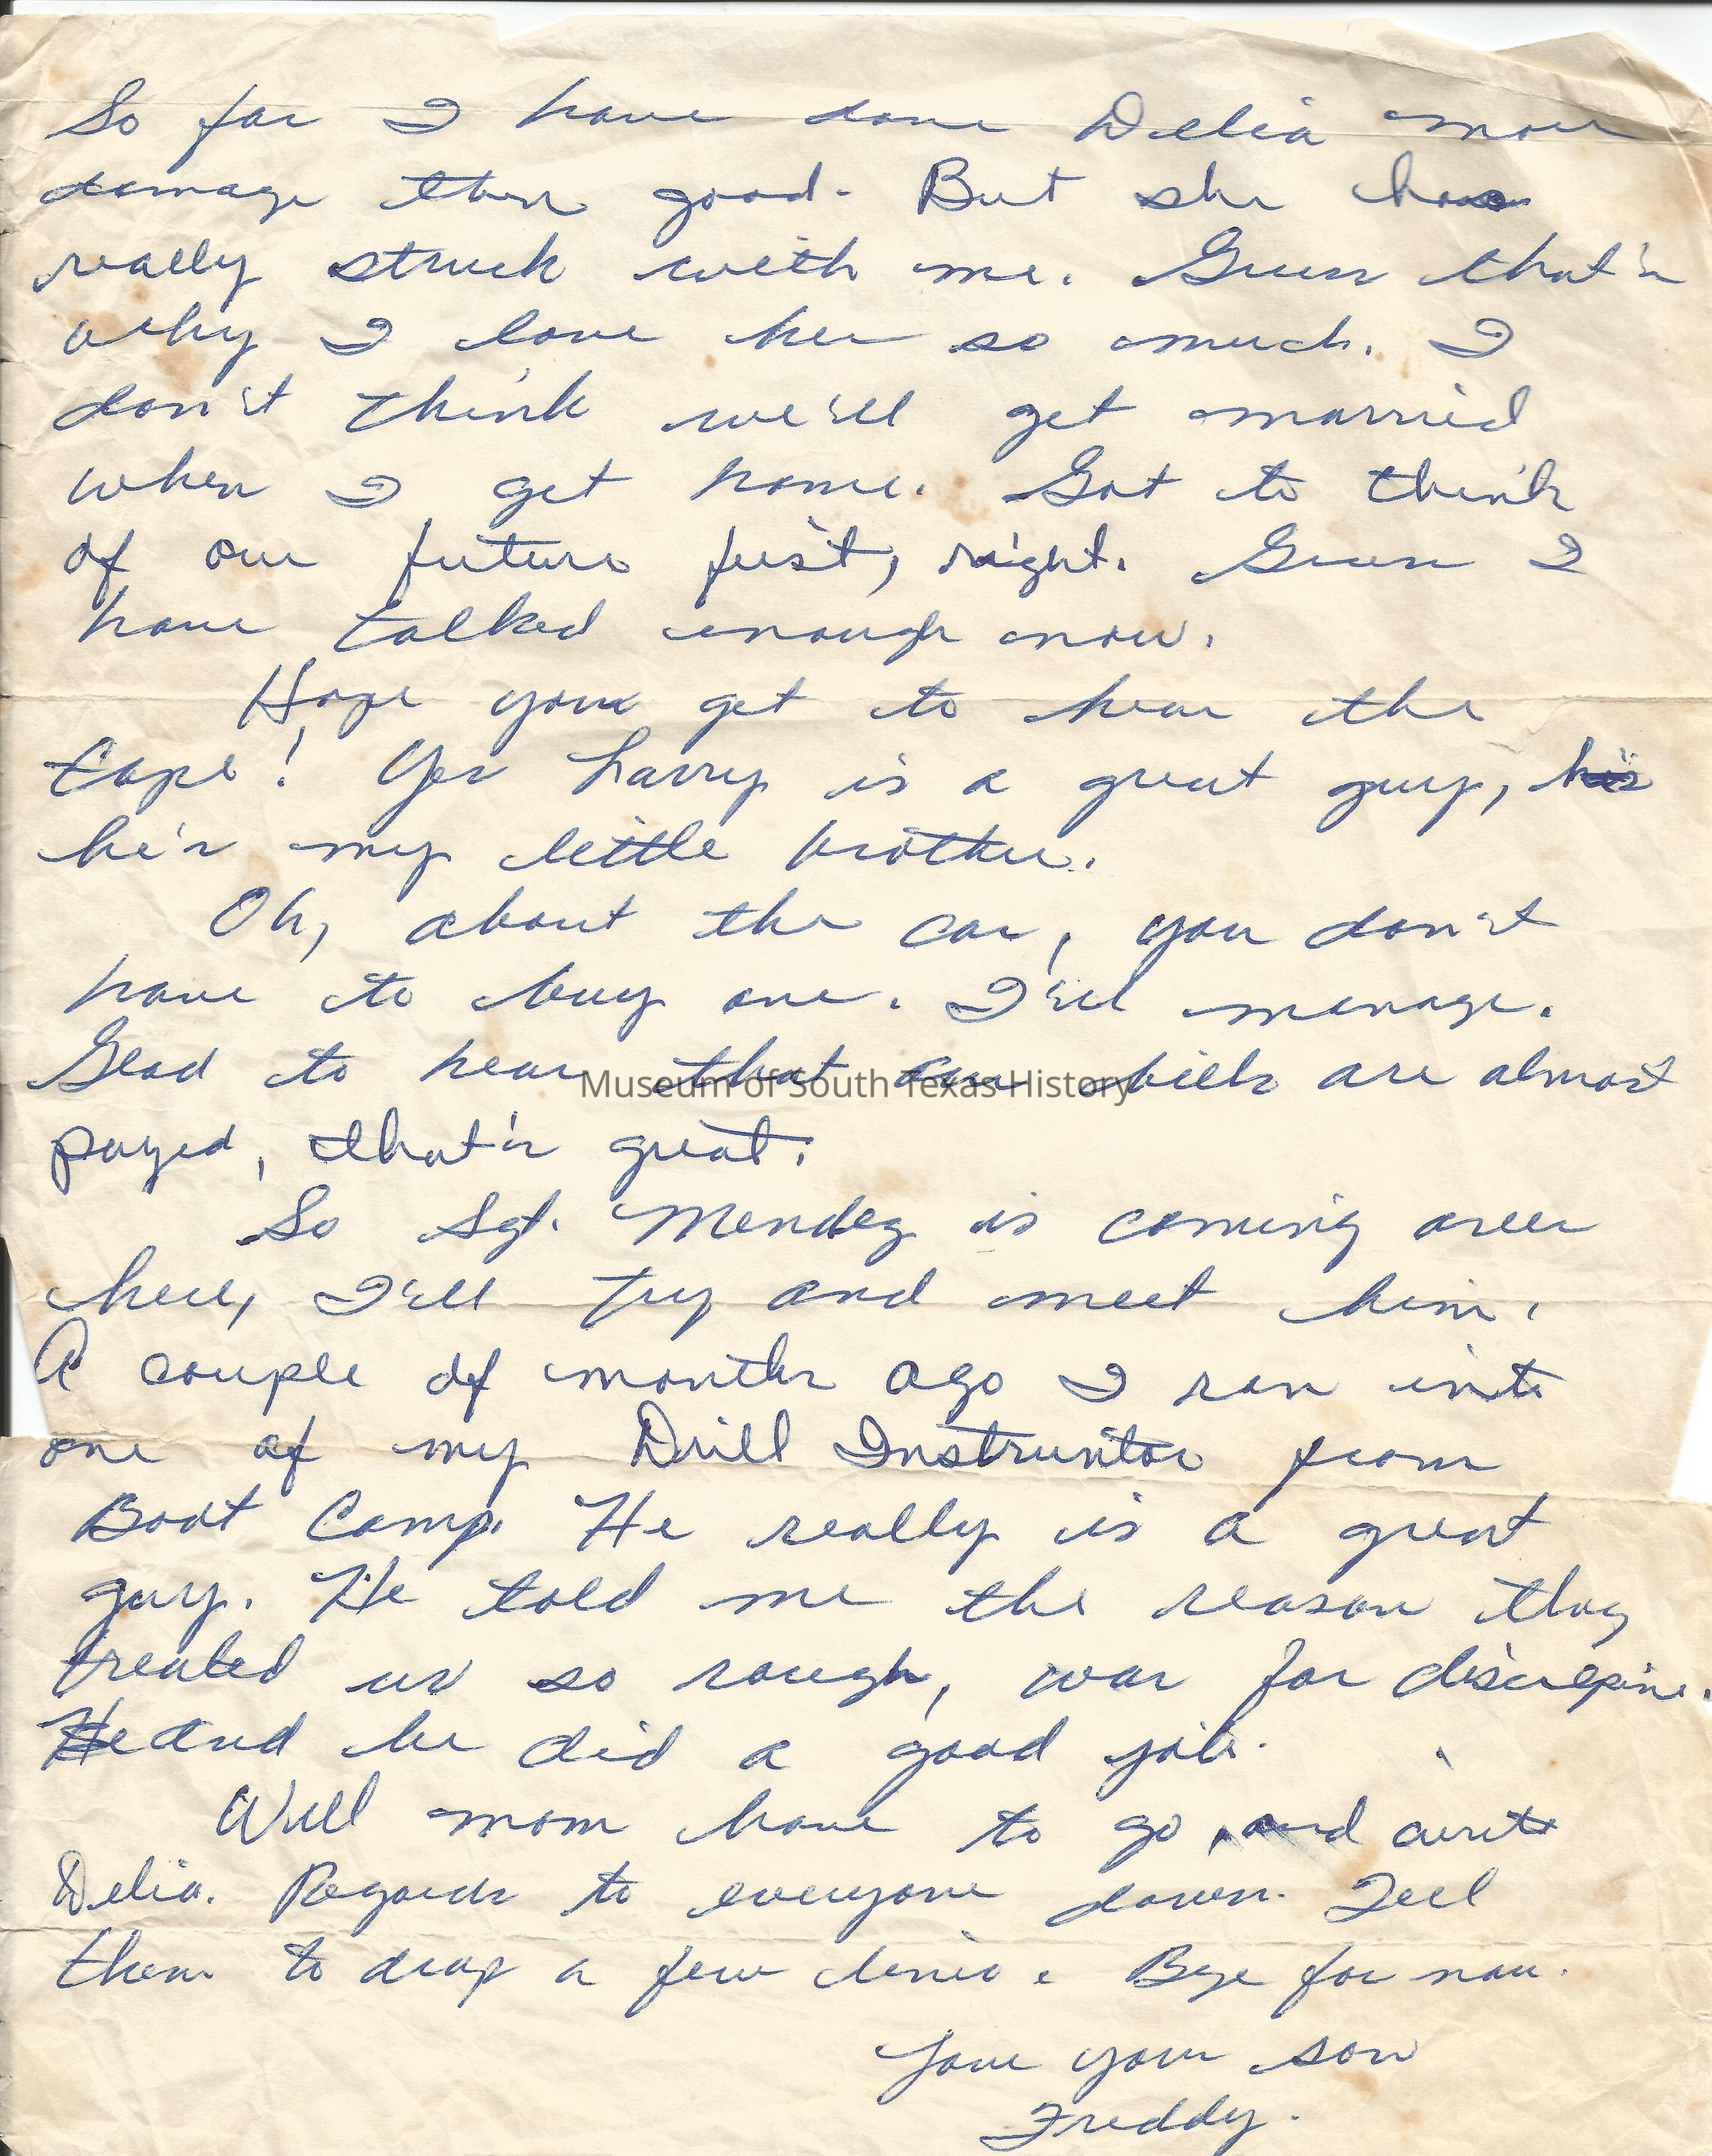 So far I have done Delia more
damage then good. But she has
really struck with me. Guess that's
why I love her so much. I
don't think we'll get married
when I get home. Got to think
of our future first, right. Guess I
have talked enough now.
Hope you get to hear the
tape! Yes Larry is a great guy, his
he's my little brother.
Oh, about the car, you don't
have to buy one. I'll manage.
Glad to hear that our bills are almost
payed, that's great.
Museum of South Texas History
So Sgt. Mendez is coming over
here, I'll try and meet him.
A couple of months ago I ran into
one of my Drill Instructor from
Boot Camp. He really is a great
guy. He told me the reason they
treated us so rough, was for discipline.
He and he did a good job.
Well mom have to go, and write
Delia. Regards to everyone down. Tell
them to drop a few lines. Bye for now.
Love your son
Freddy.